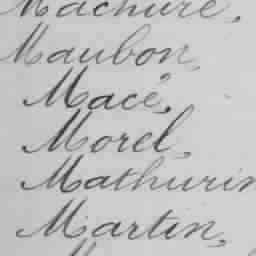 Machure,
Maubon,
Macé,
Morel,
Mathurin
Martin,